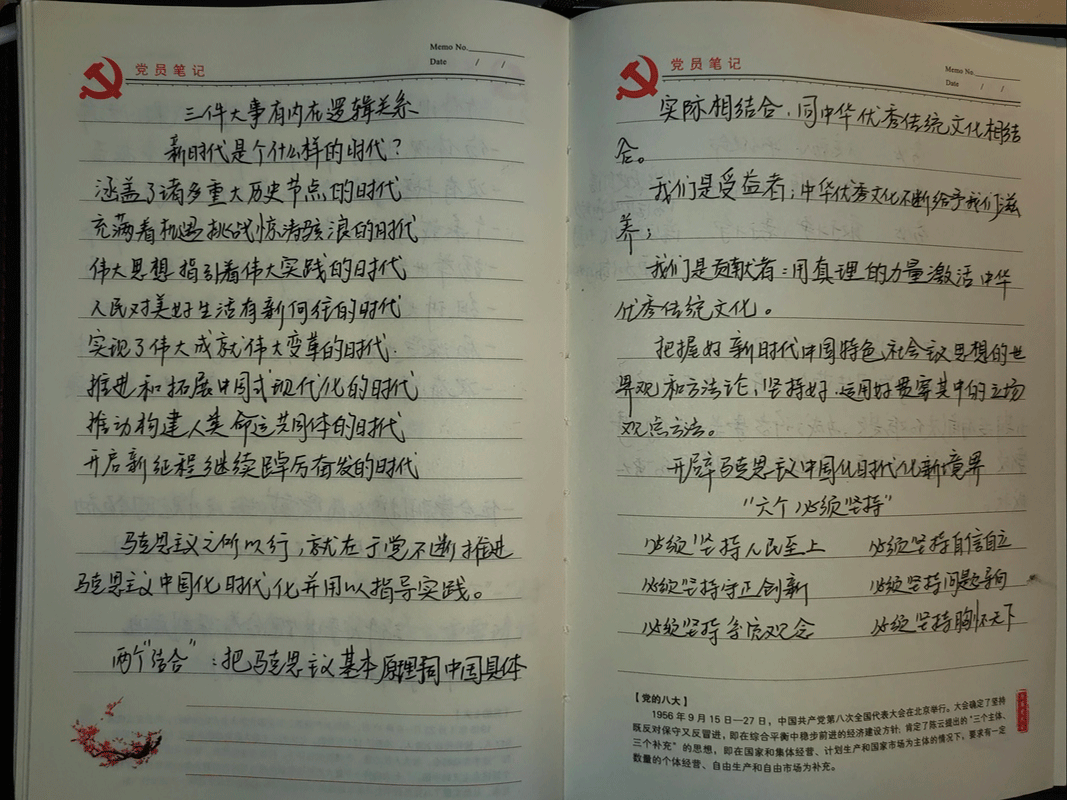 党员笔记
Memo No.
Date / /
三件大事有内在逻辑关系
新时代是个什么样的时代？
涵盖了诸多重大历史节点的时代
充满着机遇挑战惊涛骇浪的时代
伟大思想指引着伟大实践的时代
人民对美好生活有新向往的时代
实现了伟大成就伟大变革的时代.
推进和拓展中国式现代化的时代
推动构建人类命运共同体的时代
开启新征程继续踔厉奋发的时代
马克思主义之所以行，就在于党不断推进
马克思主义中国化时代化并用以指导实践。
两个“结合”：把马克思主义基本原理同中国具体
党员笔记
Memo No.
Date / /
实际相结合，同中华优秀传统文化相结
合。
我们是受益者；中华优秀文化不断给予我们滋
养；
我们是贡献者：用真理的力量激活中华
优秀传统文化。
把握好新时代中国特色社会主义思想的世
界观和方法论，坚持好、运用好贯穿其中的立场
观点方法。
开辟马克思主义中国化时代化新境界
“六个必须坚持”
必须坚持人民至上 必须坚持自信自立
必须坚持守正创新 必须坚持问题导向
必须坚持系统观念 必须坚持胸怀天下
【党的八大】
1956年9月15日—27日，中国共产党第八次全国代表大会在北京举行。大会确定了坚持
既反对保守又反冒进，即在综合平衡中稳步前进的经济建设方针，肯定了陈云提出的“三个主体、
三个补充”的思想，即在国家和集体经营、计划生产和国家市场为主体的情况下，要求有一定
数量的个体经营、自由生产和自由市场为补充。